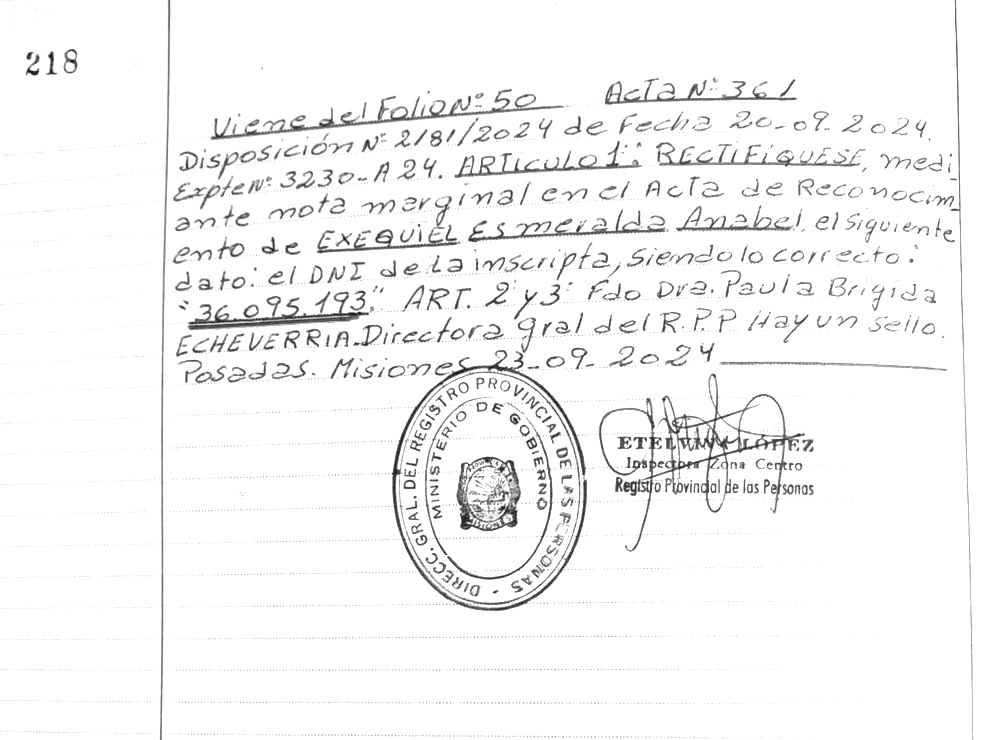 218
Viene del Folio Nº 50 Acta Nº 361
Disposición Nº 2181/2024 de Fecha 20-09-2024.
Expte Nº 3230-A24. ARTICULO 1º: RECTIFÍQUESE, medi_
ante nota marginal en el Acta de Reconocim_
ento de EXEQUIEL Esmeralda Anabel, el siguiente
dato: el DNI de la inscripta, siendo lo correcto:
"36.095.193". ART. 2º y 3º Fdo Dra. Paula Brigida
ECHEVERRIA. Directora Gral del R.P.P Hay un sello.
Posadas. Misiones 23-09-2024
DIRECC. GRAL. DEL REGISTRO PROVINCIAL DE LAS PERSONAS -
MINISTERIO DE GOBIERNO
MISIONES
LÓPEZ
Inspectora Zona Centro
Registro Provincial de las Personas